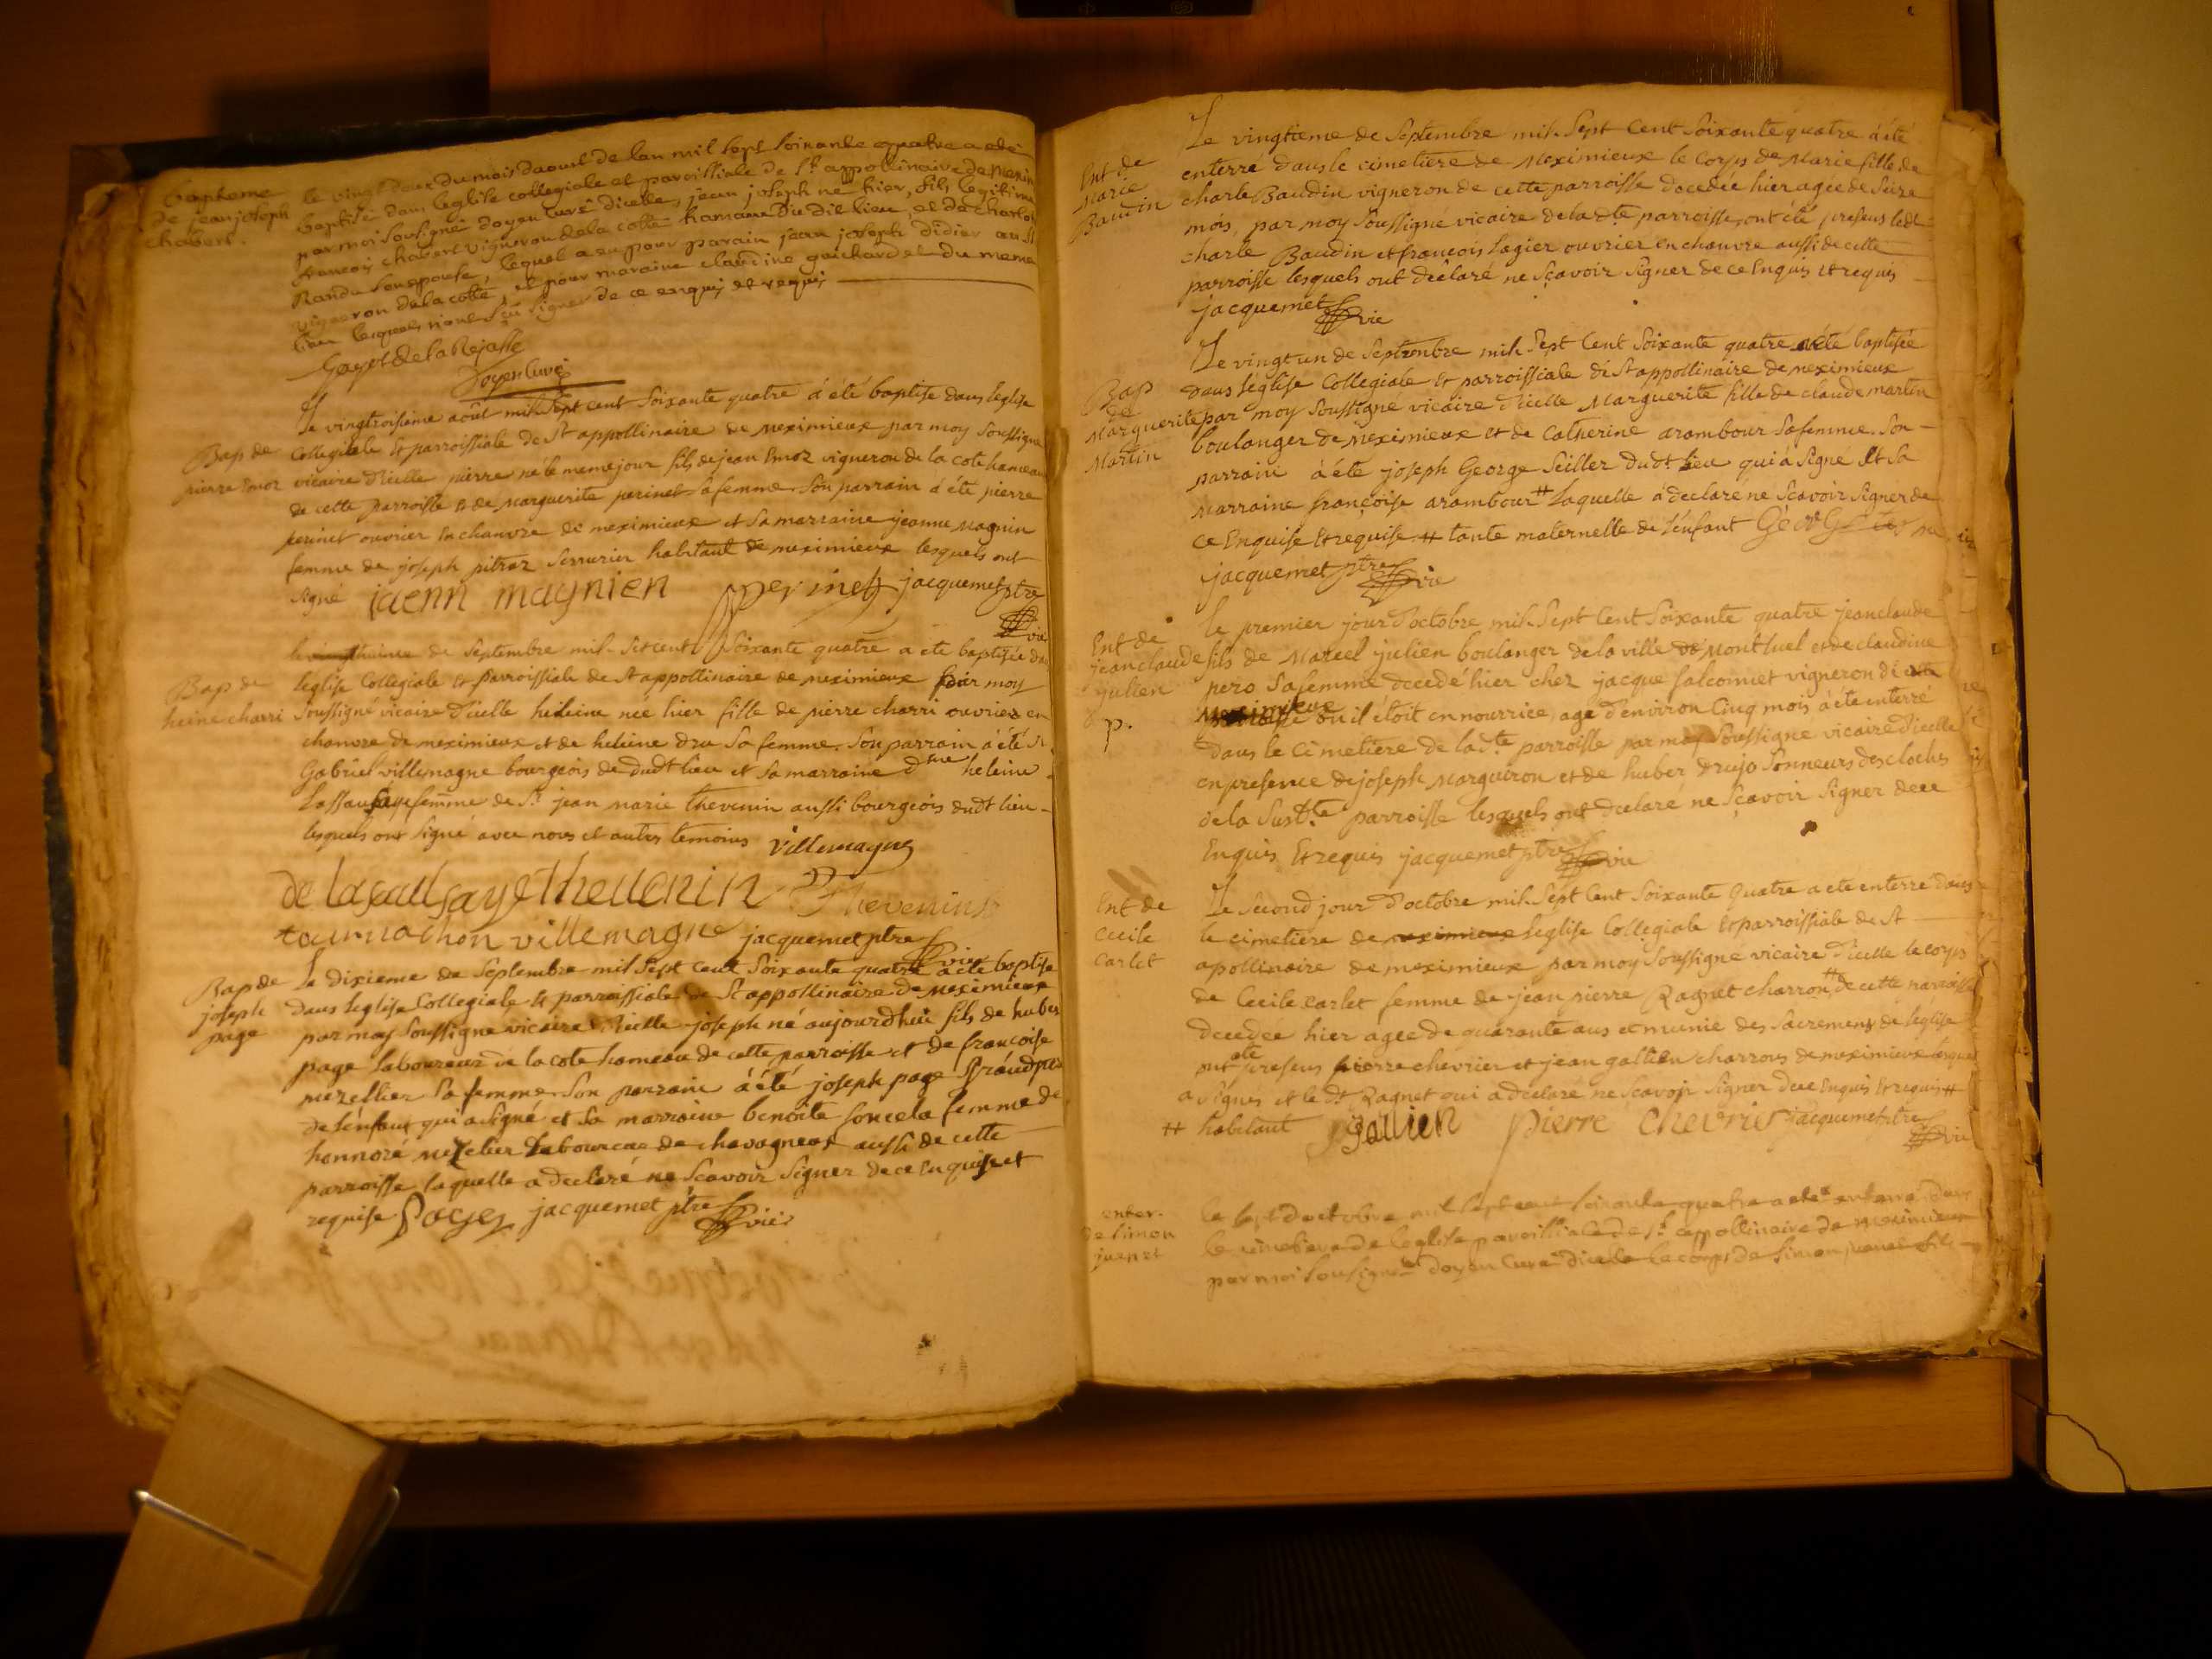 Bapteme
de jean joseph
chabert.
le vingt deux du mois daout de lan mil sept soixante quatre a eté
baptisé dans leglise collegiale et paroissiale de St appollinaire de Mexim
par moi soussigné doyen curé dicelle, jean joseph né hier, fils legitime
francois chabert vigneron de la cotte hameau du dit lieu, et de charlot
Randu son epouse, lequel a eu pour parain jean joseph didier aussi
vigneron de la cotte, et pour maraine claudine guichardet du meme
lieu lesquels n'ont sçu signer de ce enquis et requis
Goyot de la Rejasse
doyen curé
Bap de
pierre Emoz
Le vingtroisieme août mil Sept cent Soixante quatre á été baptise dans l'église
Collegiale et parroissiale de St appollinaire de meximieux par moy Soussigne
vicaire d'icelle pierre né le meme jour fils de jean Emoz vigneron de la cote hameau
de cette parroisse et de Marguerite perinet Sa femme. Son parrain á été pierre
perinet ouvrier en chanvre de meximieux et Sa marraine jeanne Magnin
femme de joseph pitraz Serrurier habitant de meximieux lesquels ont
signé jaenn magnien pperinet jacquemet ptre
vic
Bap de
heine charri
de Septembre mil Set cent Soixante quatre a été baptisée da
l'eglise Collegiale et parroissiale de St appollinaire de meximieux par moy
Soussigné vicaire d'icelle heleine née hier fille de pierre charri ouvrier en
chanvre de meximieux et de heleine dru Sa femme. Son parrain á été Sr
Gabriel villemagne bourgeois de dudt lieu et Sa marraine dme heleine
Lassausaye femme de Sr jean marie thevenin aussi bourgeois dudt lieu
lesquels ont Signé avec nous et autres temoins Villemagne
de lasaulsaye thevenin Thevenin
tournachon villemagne jacquemet ptre
vic
Bap de
joseph
page
Le dixieme de Septembre mil Sept cent Soixante quatre á été baptise
Dans l'eglise Collegiale et parroissiale de St appollinaire de Meximieux
par moy Soussigne vicaire d'icelle joseph né aujourdhui fils de huber
page laboureur de la cote hameau de cette parroisse et de françoise
mezellier Sa femme. Son parrain á été joseph page grandpere
de l'enfant qui a signé et Sa marraine benoite foncela femme de
honnoré mezelier Laboureur de chavagneux aussi de cette
parroisse laquelle a declaré ne Scavoir Signer de ce Enquise et
requise Poges jacquemet ptre vic
Ent de
Marie
Baudin
Le vingtieme de Septembre mil Sept Cent Soixante quatre á été
enterré dans le cimetiere de Meximieux le Corps de Marie fille de
charle Baudin vigneron de cette parroisse decedée hier agée de Seize
mois, par moy Soussigné vicaire de la dte parroisse, ont été presens ledt
charle Baudin et francois Lagier ouvrier en chanvre aussi de cette
parroisse lesquels ont declaré ne Sçavoir Signer de ce Enquis et requis
jacquemet vic
Bap
de
Marguerite
Martin
Le vingt un de Septembre mil Sept Cent Soixante quatre a été baptisée
Dans l'eglise Collegiale et parroissiale de St appollinaire de meximieux
par moy Soussigné vicaire d'icelle Marguerite fille de claude martin
boulanger de Meximieux et de Catherine arambour Sa femme. Son
parrain á été joseph George Seiller dudt lieu qui a Signé et Sa
marraine françoise arambour # Laquelle á declaré ne Scavoir Signer de
ce Enquise et requise # tante maternelle de l'enfant
jacquemet ptre vic
Ent de
jean claude
julien
p.
Le premier jour d'octobre mil Sept Cent Soixante quatre jean claude
fils de Marcel julien boulanger de la ville de Montluel et de claudine
pero Sa femme decedé hier chez jacque falconnet vigneron de
Meximieux ou il étoit en nourrice, age d'environ Cinq mois á été enterré
dans le Cimetiere de la dte parroisse par moy Soussigne vicaire d'icelle
en presence de joseph Marguiron et de huber drujo Sonneurs des cloches
de la Susdte parroisse lesquels ont declaré ne Sçavoir Signer de ce
Enquis et requis jacquemet ptre vic
Ent de
Cecile
Carlet
Le Second jour d'octobre mil Sept Cent Soixante Quatre a été enterré dans
le cimetiere de meximieux l'eglise Collegiale et parroissiale de St
apollinaire de meximieux par moy Soussigne vicaire d'icelle le corps
de Cecile carlet femme de jean pierre Ragnet charron # de cette parroisse
decedée hier agée de quarante ans et munie des Sacremens de l'eglise
ont été presens pierre chevrier et jean gallien charrons de meximieux lesquel
a Signes et le dt Ragnet qui a declaré ne Scavoir Signer de ce Enquis et requis #
# habitant Jgallien pierre chevrier jacquemet ptre
vic
enter.
de simon
juenet
le sept doctobre mil sept cent soixante quatre a eté enterré dans
le cimetiere de leglise paroissiale de St appollinaire de meximieux
par moi soussigné doyen curé dicelle le corps de simon juenet fils